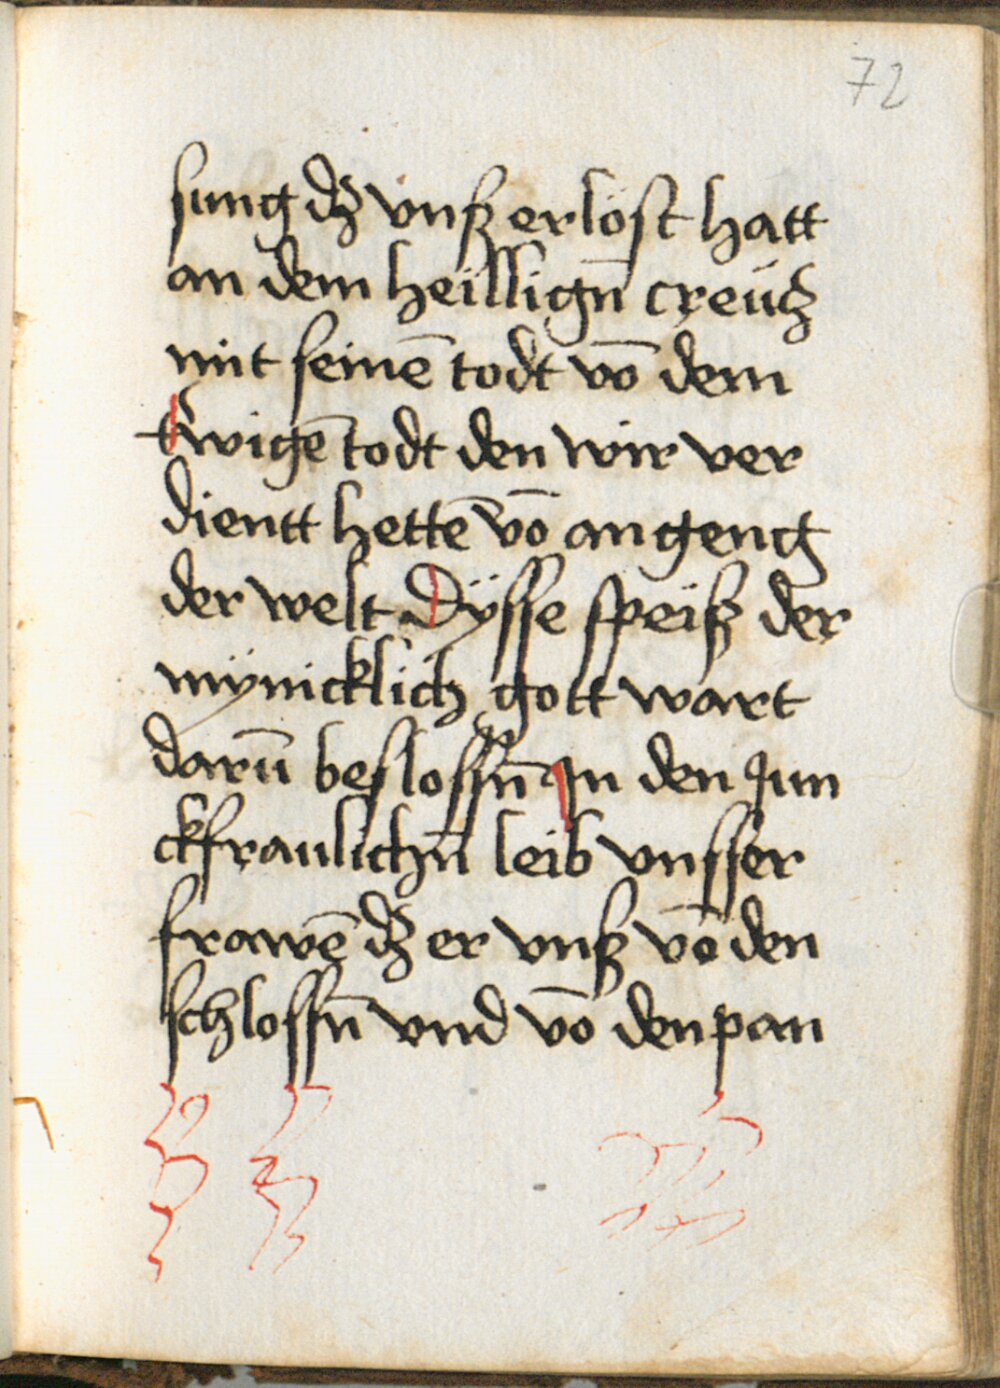 72
sung dz vnß erlöst hatt
an dem heilligñ creütz
mit seinē todt vō dem
Ewigē todt den wir ver
dientt hettē vō angeng
der welt Dÿsse speiß der
mÿnicklich gott wart
darū beslossñ In den Jun
ckfraulichñ leib vnsser
frawē dz er vnß vō den
schlossñ vnd vō den pan